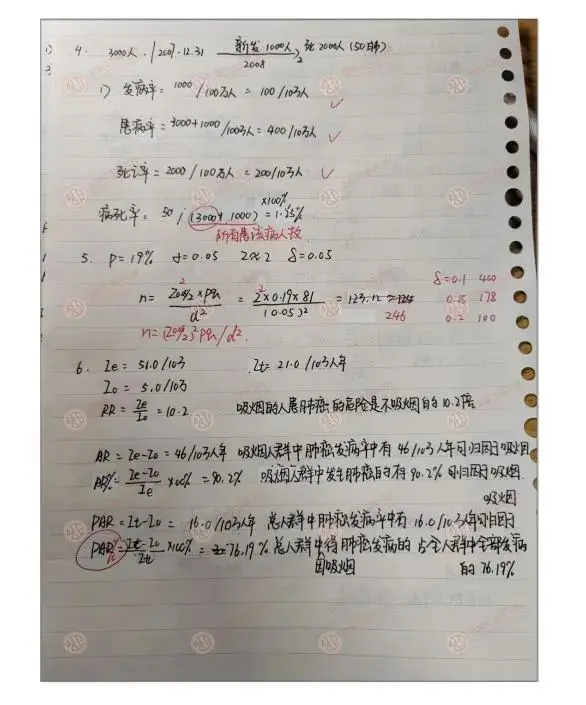 4. 3000人 / 2007.12.31 新发1000人 2008 死2000人(50肺)
1) 发病率 = 1000 / 100万人 = 100 / 10万人 ✓
患病率 = 3000+1000 / 100万人 = 400 / 10万人 ✓
死亡率 = 2000 / 100万人 = 200 / 10万人 ✓
病死率 = 50 / (3000+1000) ×100% = 1.25%
所有患该病人数
5. P=19% α=0.05 Z≈2 δ=0.05
δ=0.1 400
n = Zα/2² × pq / d² = 2² × 0.19 × 81 / (0.05)² = 123.12 ≈ 124
0.15 178
246 0.2 100
n = (Zα/2)² pq / d².
6. Ie = 51.0 / 10万 It = 21.0 / 10万人年
Io = 5.0 / 10万
RR = Ie / Io = 10.2 吸烟的人患肺癌的危险是不吸烟的10.2倍
AR = Ie - Io = 46 / 10万人年 吸烟人群中肺癌发病率中有46/10万人年可归因于吸烟
AR% = Ie - Io / Ie ×100% = 90.2% 吸烟人群中发生肺癌的有90.2%归因于吸烟.
吸烟
PAR = It - Io = 16.0 / 10万人年 总人群中肺癌发病率中有16.0/10万人年可归因于
PAR% = It - Io / It ×100% = 76.19% 总人群中得肺癌发病的占全人群中全部发病
因吸烟 的76.19%